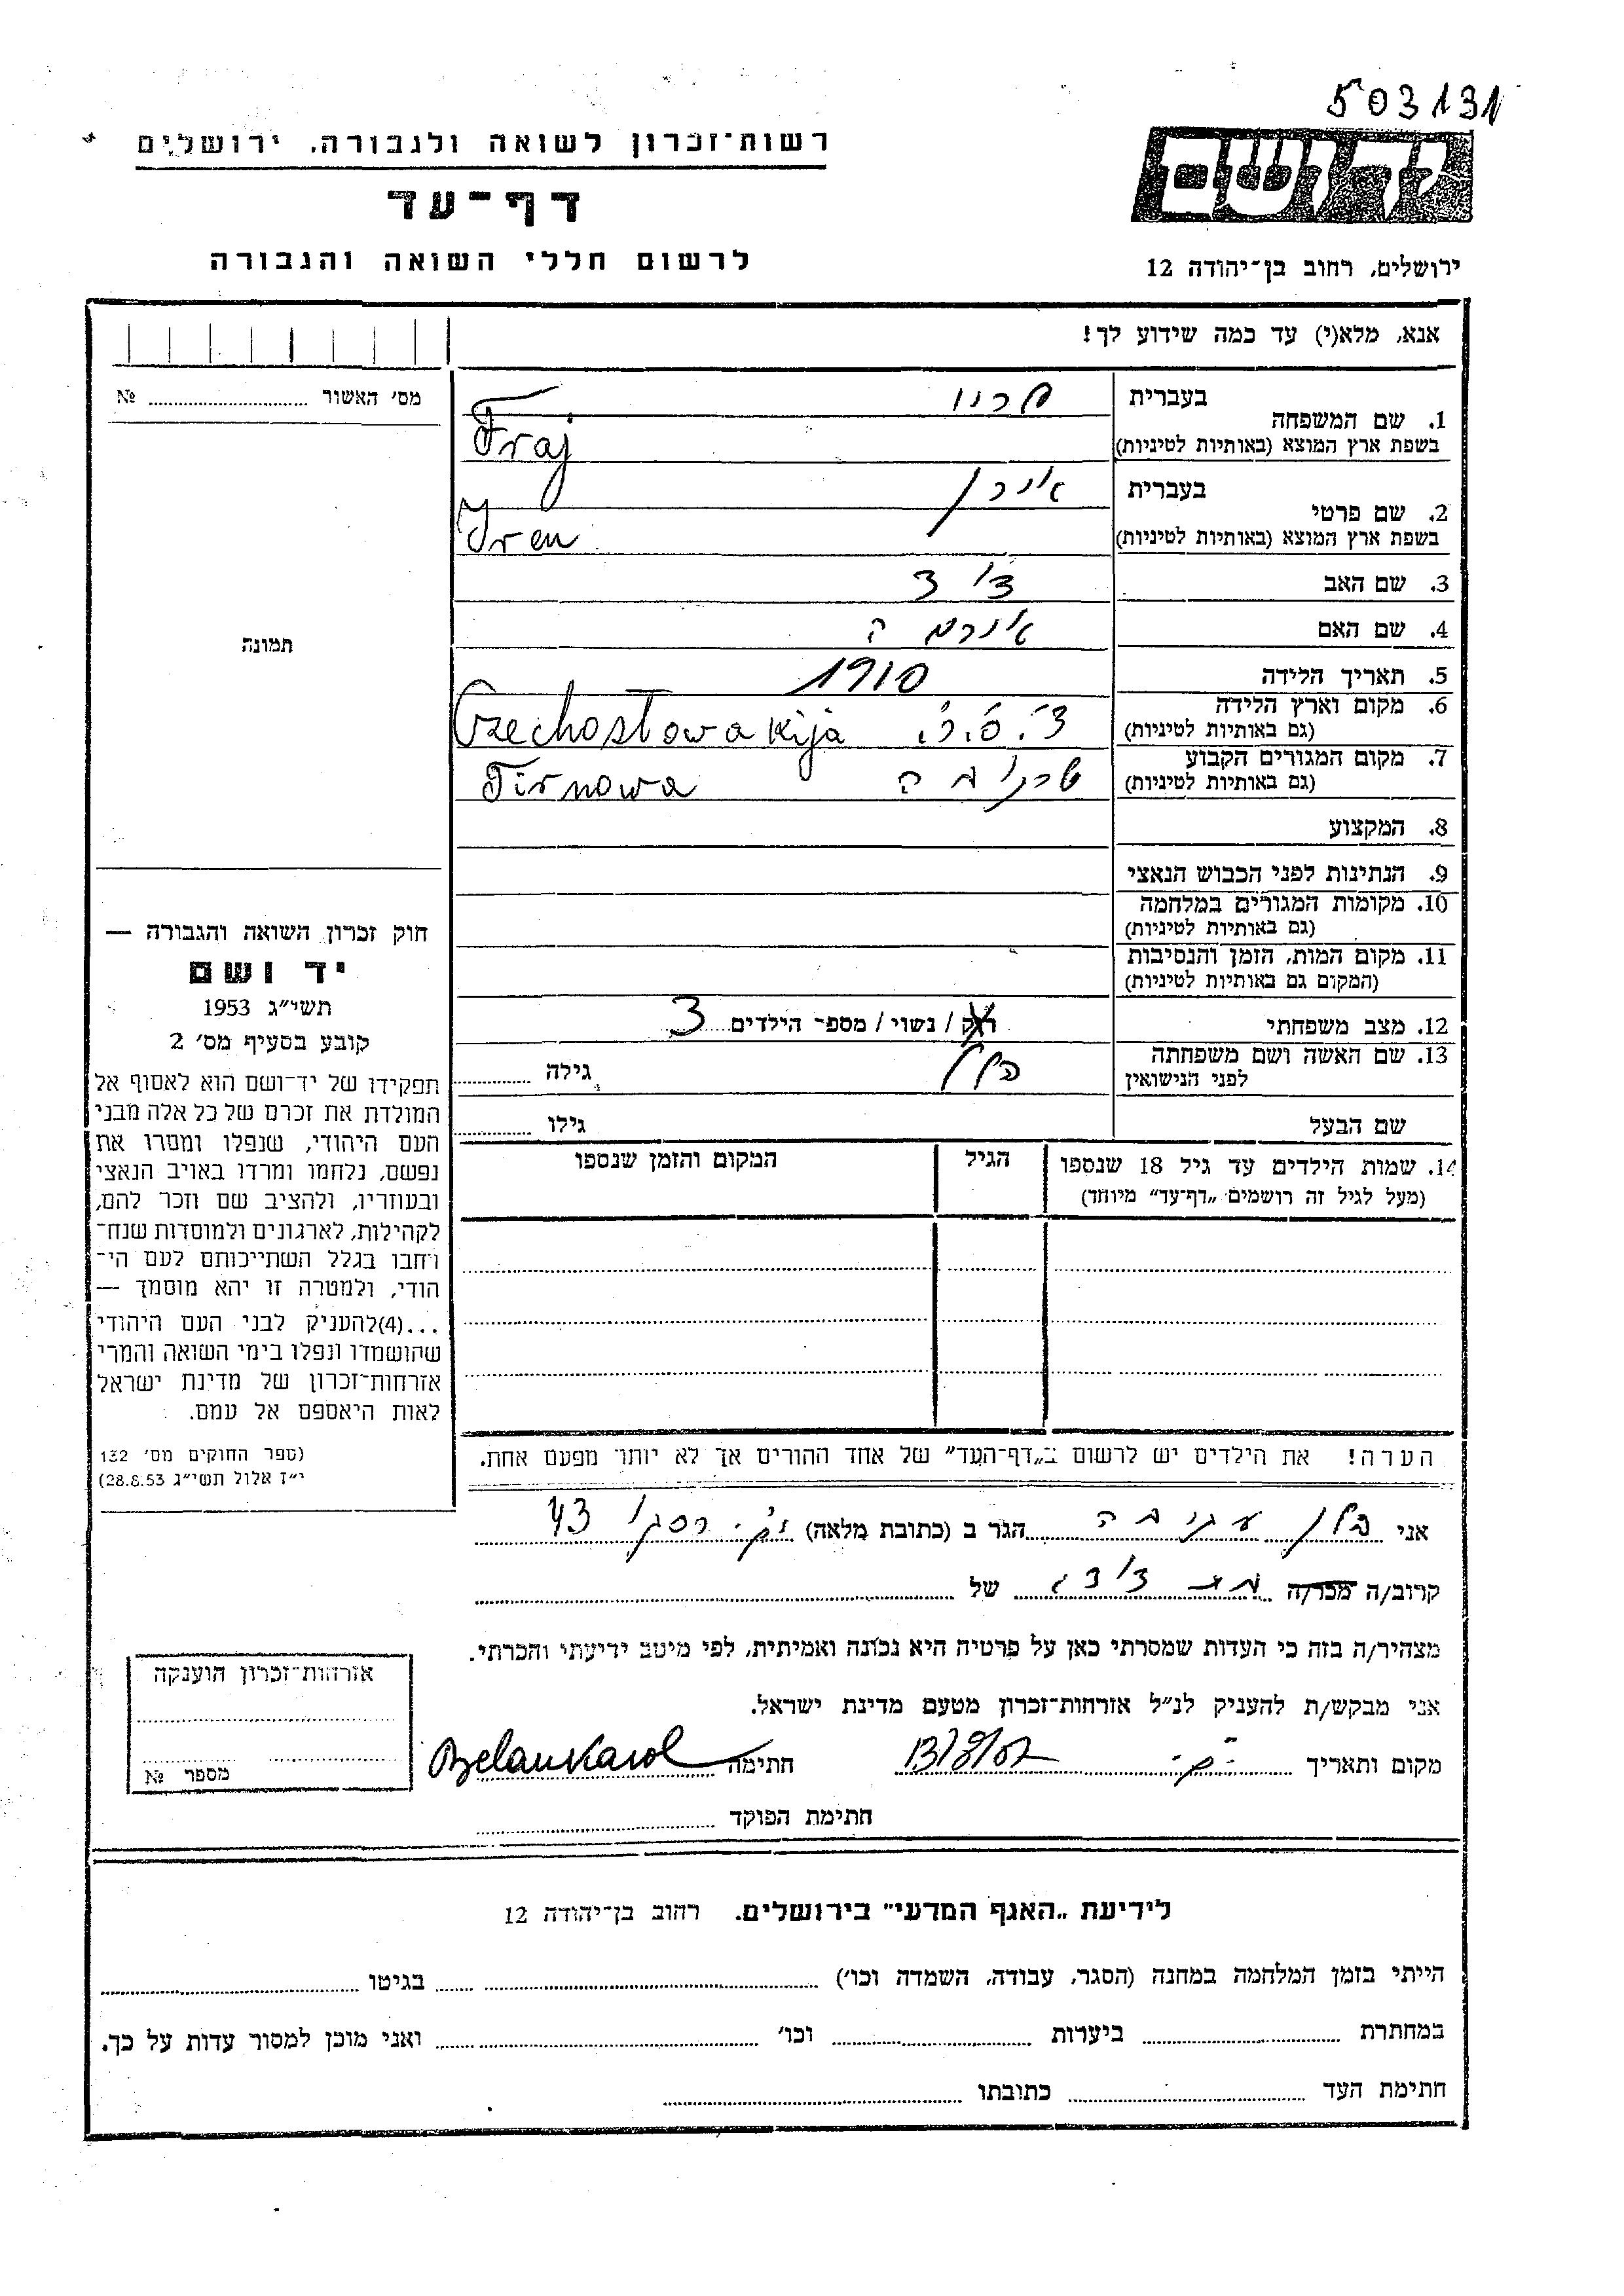 503131
יד ושם
רשות־זכרון לשואה ולגבורה. ירושלים
דף־עד
לרשום חללי השואה והגבורה
ירושלים, רחוב בן־יהודה 12
אנא, מלא(י) עד כמה שידוע לך!
מס׳ האשור № 
1. שם המשפחה
בעברית
בשפת ארץ המוצא (באותיות לטיניות)
Fraj
2. שם פרטי
בעברית אירן
בשפת ארץ המוצא (באותיות לטיניות)
Iren
3. שם האב
4. שם האם
5. תאריך הלידה 1910
6. מקום וארץ הלידה
(גם באותיות לטיניות)
צ׳.ס.ר. Czechostowakija
7. מקום המגורים הקבוע
(גם באותיות לטיניות)
טרנובה Tirnowa
8. המקצוע
9. הנתינות לפני הכבוש הנאצי
10. מקומות המגורים במלחמה
(גם באותיות לטיניות)
11. מקום המות, הזמן והנסיבות
(המקום גם באותיות לטיניות)
12. מצב משפחתי
רוק / נשוי / מספר הילדים 3
13. שם האשה ושם משפחתה
לפני הנישואין
בלן
גילה
שם הבעל
גילו
תמונה
חוק זכרון השואה והגבורה —
יד ושם
תשי״ג 1953
קובע בסעיף מס׳ 2
תפקידו של יד־ושם הוא לאסוף אל
המולדת את זכרם של כל אלה מבני
העם היהודי, שנפלו ומסרו את
נפשם, נלחמו ומרדו באויב הנאצי
ובעוזריו, ולהציב שם וזכר להם,
לקהילות, לארגונים ולמוסדות שנח־
רחבו בגלל השתייכותם לעם הי־
הודי, ולמטרה זו יהא מוסמך —
...(4)להעניק לבני העם היהודי
שהושמדו ונפלו בימי השואה והמרי
אזרחות־זכרון של מדינת ישראל
לאות היאספם אל עמם.
(ספר החוקים מס׳ 132
י״ז אלול תשי״ג 28.8.53)
14. שמות הילדים עד גיל 18 שנספו
(מעל לגיל זה רושמים „דף־עד״ מיוחד)
הגיל
המקום והזמן שנספו
הערה! את הילדים יש לרשום ב„דף־העד״ של אחד ההורים אך לא יותר מפעם אחת.
אני בלן הגר ב (כתובת מלאה) 43
קרוב/ה מכר/ה של
מצהיר/ה בזה כי העדות שמסרתי כאן על פרטיה היא נכונה ואמיתית, לפי מיטב ידיעתי והכרתי.
אני מבקש/ת להעניק לנ״ל אזרחות־זכרון מטעם מדינת ישראל.
מקום ותאריך חתימה Belan Karol
חתימת הפוקד
אזרחות־זכרון הוענקה
מספר №
לידיעת „האגף המדעי״ בירושלים. רחוב בן־יהודה 12
הייתי בזמן המלחמה במחנה (הסגר, עבודה, השמדה וכו׳) בגיטו
במחתרת ביערות וכו׳ ואני מוכן למסור עדות על כך.
חתימת העד כתובתו